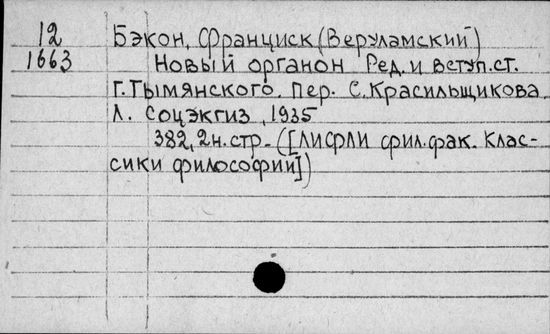 12 Бэкон, Франциск (Веруламский)
1663 Новый органон Ред. и вступ. ст.
Г. Тымянского. Пер. С. Красильщикова.
Л. Соцэкгиз, 1935
382, 2 н. стр. ([ЛИФЛИ фил. фак. Клас-
сики философии])